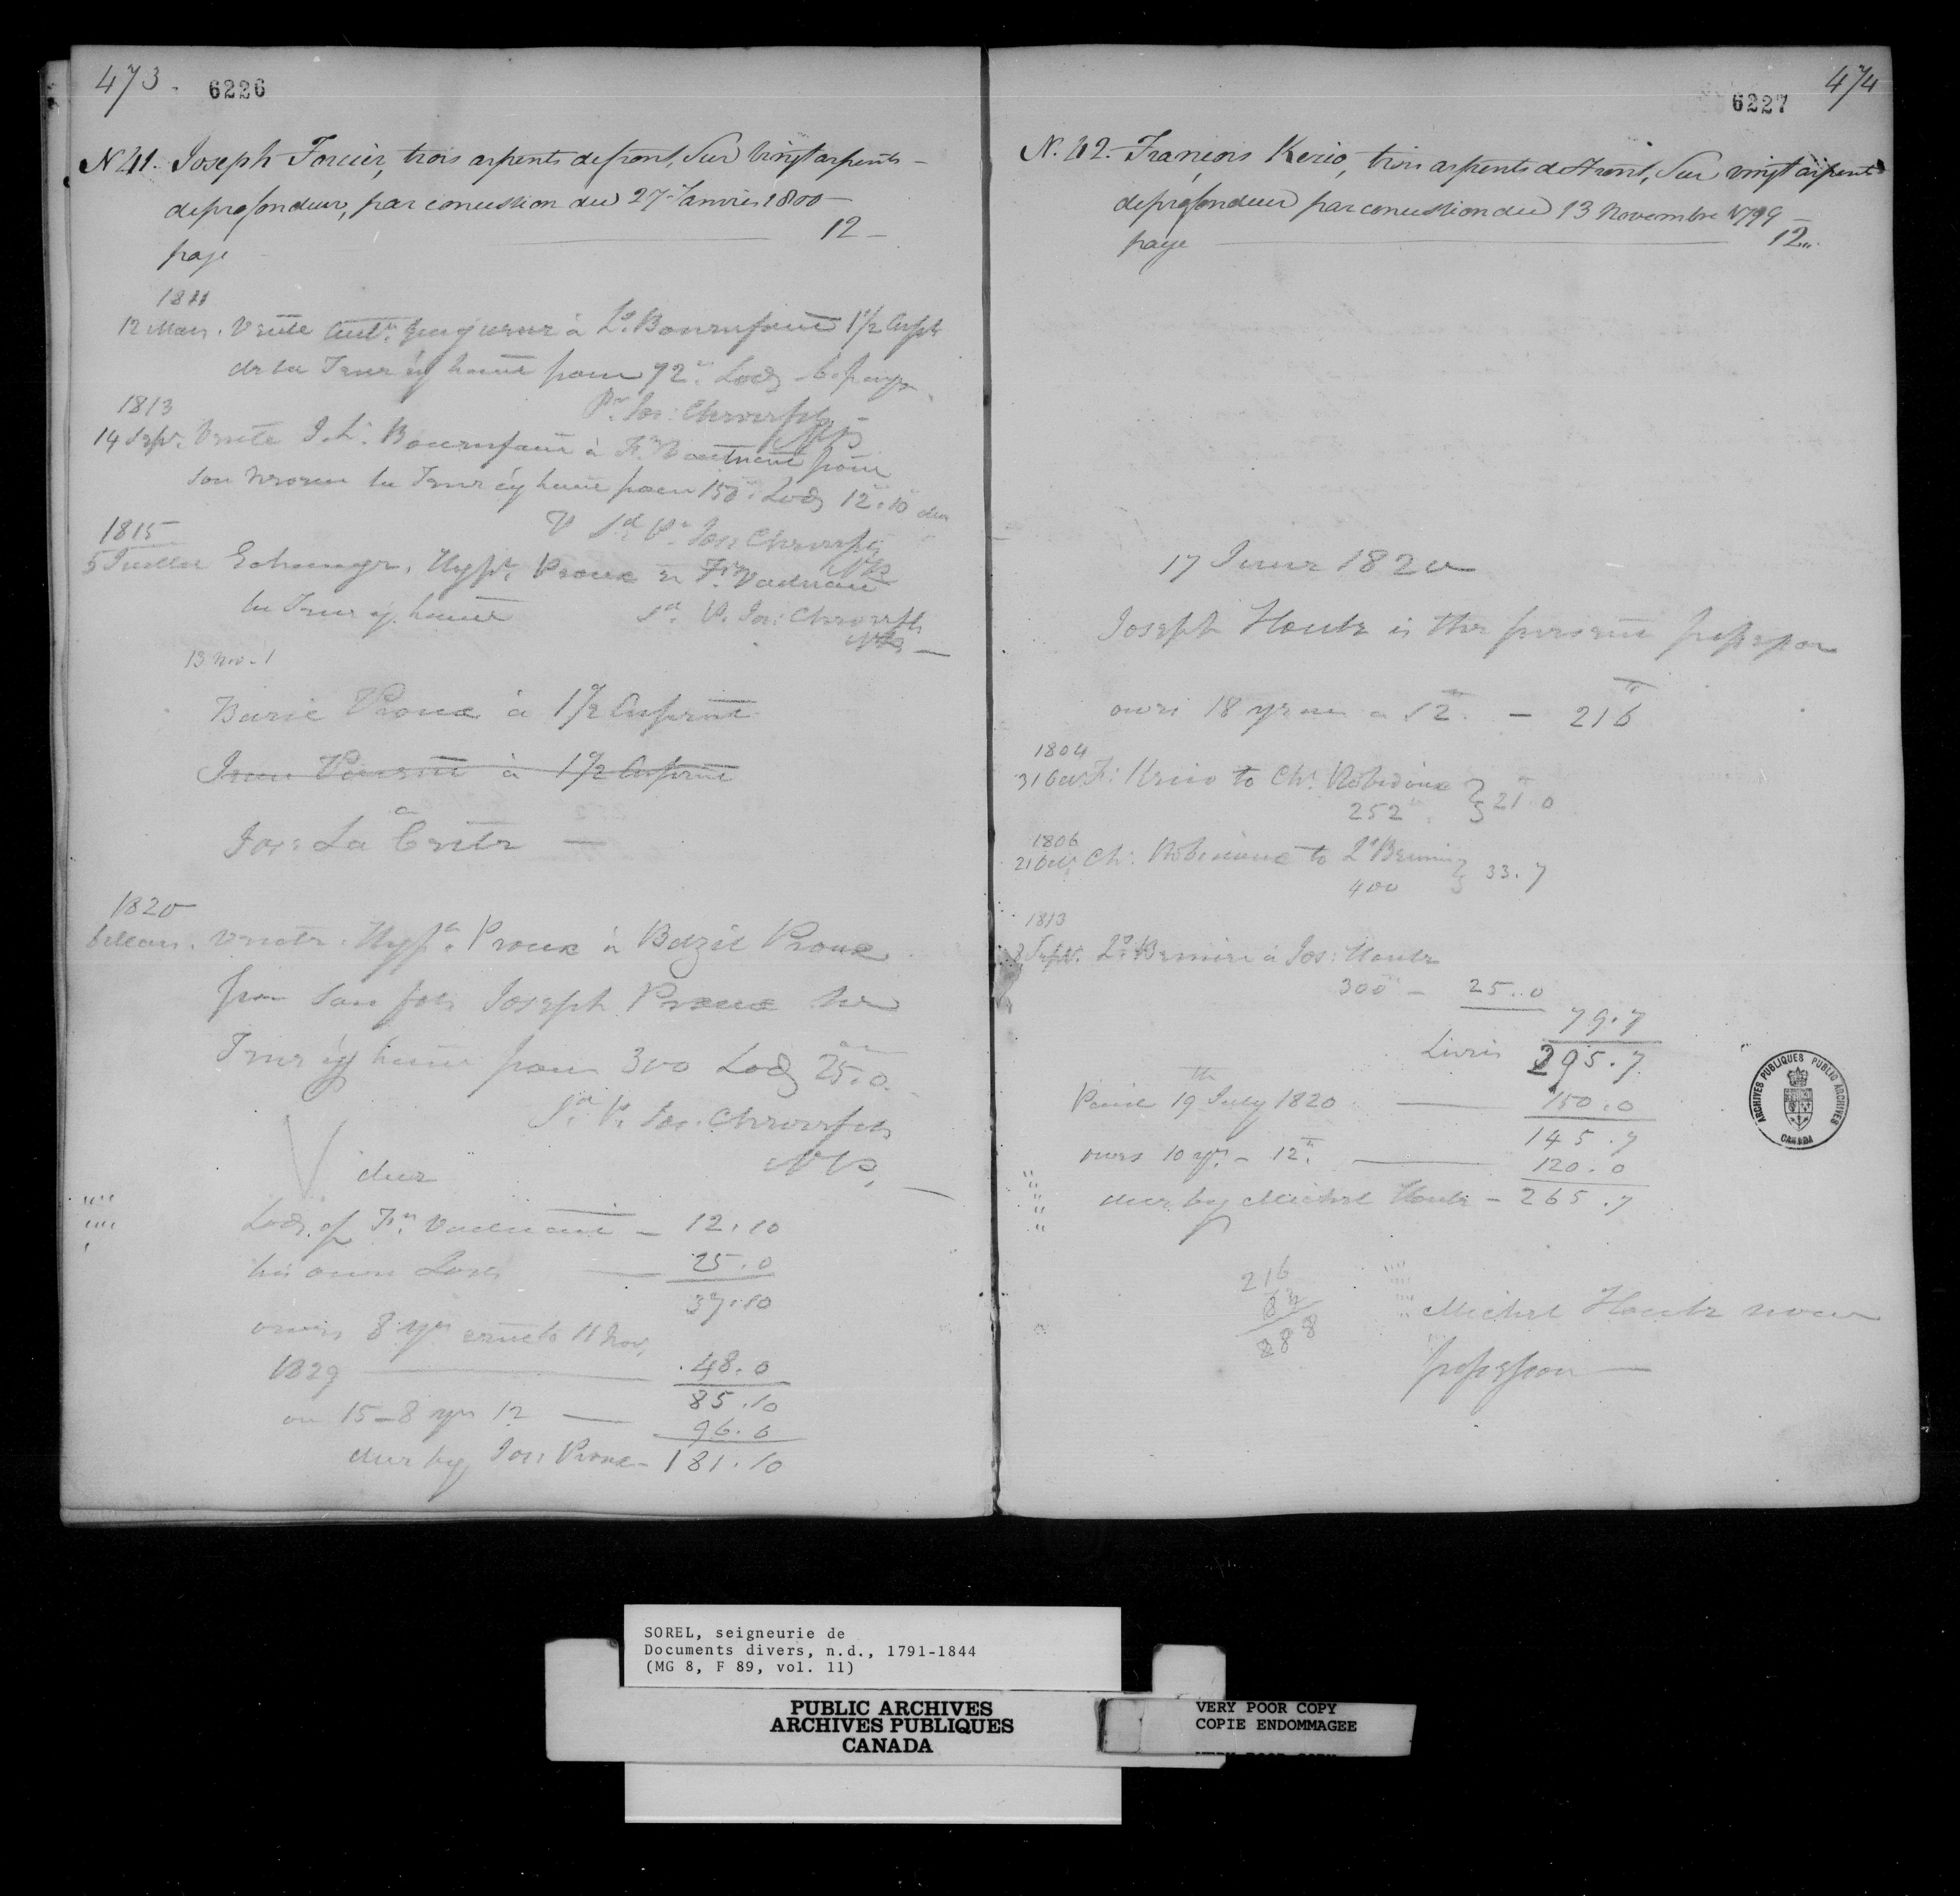 473. 6226
N 41. Joseph Forcier, trois arpents de front, Sur vingt arpents -
de profondeur, par concession du 27 Janvier 1800 -
paye 12 -
1811
12 Mars. Vente à Ls. Bournfaire 1 1/2 Arpt
de la Terre cy haute pour 72tt. Lods - 6.
Pr. Jos: Chevrefils
NP
1813
14 Sepr. Vente Ls. Bournfaire à Fr.
la Terre cy haute pour 150tt. Lods 12.10 due
V Sd. P. Jos: Chevrefils
NP
1815
5 Juillet Echange, Hypte. Proux &
la Terre cy haute Sd. P. Jos: Chevrefils
NP -
13 Nov. 1
Bazie Proux à 1 1/2 Arpent
à 1 1/2 Arpent
Jos: La
1820
6 Mars. Vente. Hypte. Proux à Bazil Proux
pour son fils Joseph Proux la
Terre cy haute pour 300 Lods 25.0.
Sd. P. Jos. Chevrefils
NP. -
V due
Lods of Fr. - 12.10
his own Lods - 25.0
37.10
owes 8 yrs 11 Nov,
1829 - 48.0
85.10
on 15 - 8 yrs 12 - 96.0
due by Jos: Proux - 181.10
6227 474
N. 42. François Kerio, trois arpents de front, Sur vingt arpents
de profondeur par concession du 13 Novembre 1799 -
paye 12.
17 June 1820
Joseph Houle is the present possessor
owes 18 years a 12tt. - 216tt
1804
31 F: Kerio to Chs. Robidoux } 21tt.0
252tt.
1806
21 Chs. Robidoux to Ls } 33.7
400
1813
8 Sepr. Ls. à Jos: Houle
300tt - 25..0
79.7
Livres 295.7.
Paid 19th July 1820 - 150.0
145.7
owes 10 yrs. - 12tt. - 120.0
due by Michel Houle - 265.7
216
888
Michel Houle now
possessor -
ARCHIVES PUBLIQUES PUBLIC ARCHIVES
CANADA
SOREL, seigneurie de
Documents divers, n.d., 1791-1844
(MG 8, F 89, vol. 11)
PUBLIC ARCHIVES
ARCHIVES PUBLIQUES
CANADA
VERY POOR COPY
COPIE ENDOMMAGEE
VERY POOR COPY